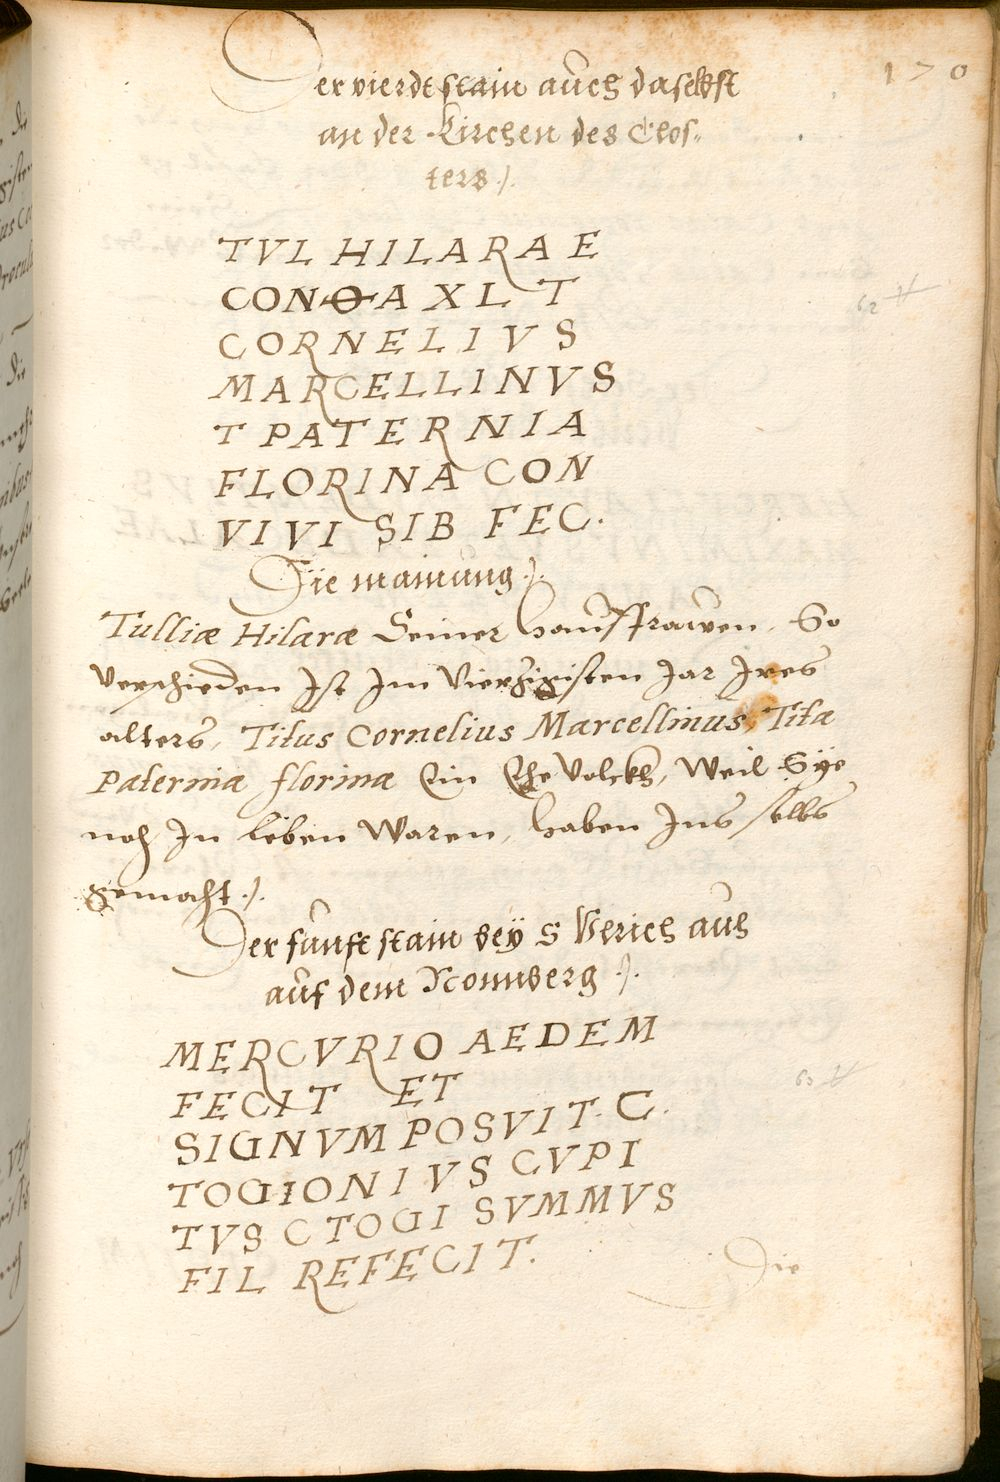 170
Der vierdt stain auch daselbst
an der Kirchen des Clos-
ters ./.
TVL HILARAE
CON O A XL T
CORNELIVS
MARCELLINVS
T PATERNIA
FLORINA CON
VIVI SIB FEC.
62
Die mainung ./.
Tulliæ Hilaræ Seiner Hausfrawen, So
verschieden Ist Im Vierzigisten Jar Jres
alters, Titus Cornelius Marcellinus, Tita
Paternia florina Ein Ehe Volckh, Weil Sÿe
noch In leben Waren, haben Ins selbs
gemacht ./.
Der funft stain beÿ S Vlrich aus
auf dem Nonnberg ./.
MERCVRIO AEDEM
FECIT ET
SIGNVM POSVIT. C.
TOGIONIVS CVPI
TVS C TOGI SVMMVS
FIL REFECIT.
63
Die